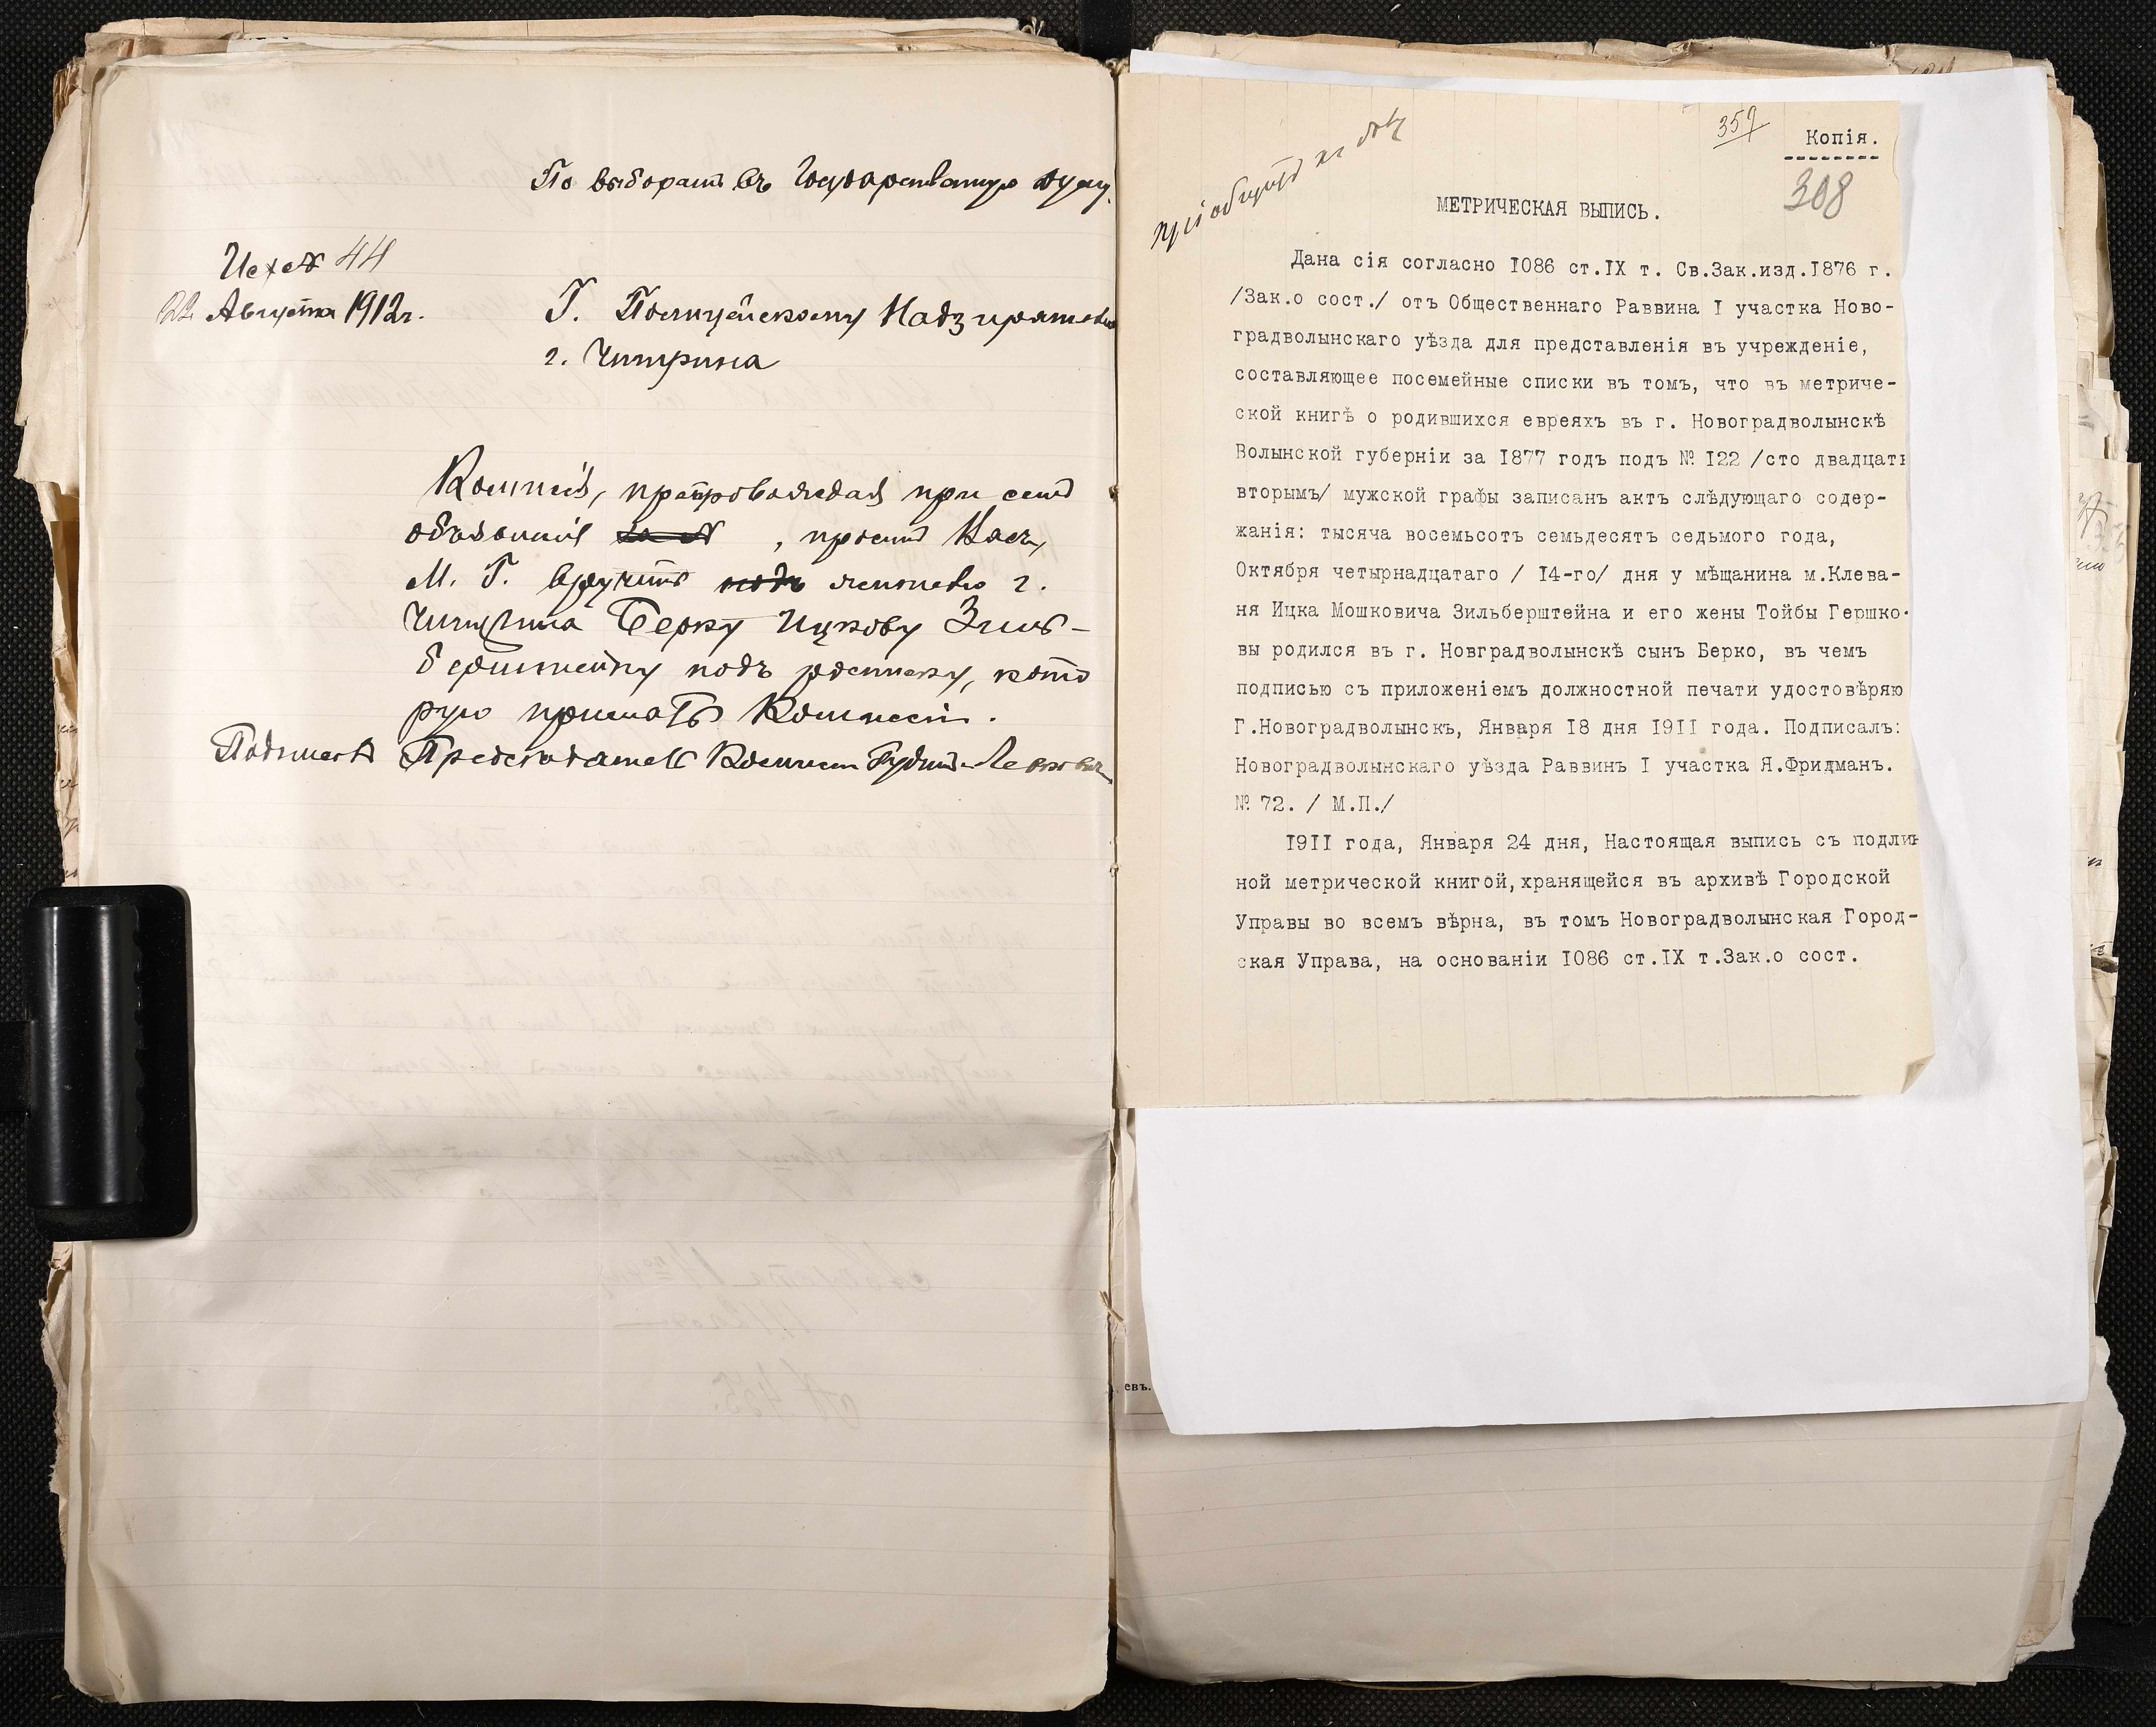 По выборамъ въ Государственную думу.
Исх. № 44
22 Августа 1912 г.
Г. Полицейскому Надзирателю
г. Чигирина
Комисія, препровождая при семъ
объявленіе за № , проситъ Васъ,
М. Г. вручить подъ жителю г.
Чигирина Берку Ицкову Зиль-
берштейну подъ росписку, кото
рую прислать Комиссіи.
Подписалъ Предсѣдатель Комиссіи
Пріобщить къ дѣлу
359
Копія.
308
МЕТРИЧЕСКАЯ ВЫПИСЬ.
Дана сія согласно 1086 ст.IX т. Св.Зак.изд.1876 г.
/Зак.о сост./ отъ Общественнаго Раввина I участка Ново-
градволынскаго уѣзда для представленія въ учрежденіе,
составляющее посемейные списки въ томъ, что въ метриче-
ской книгѣ о родившихся евреяхъ въ г. Новоградволынскѣ
Волынской губерніи за 1877 годъ подъ № 122 /сто двадцать
вторымъ/ мужской графы записанъ актъ слѣдующаго содер-
жанія: тысяча восемьсотъ семьдесятъ седьмого года,
Октября четырнадцатаго / 14-го/ дня у мѣщанина м.Клева-
ня Ицка Мошковича Зильберштейна и его жены Тойбы Гершко-
вы родился въ г. Новградволынскѣ сынъ Берко, въ чемъ
подписью съ приложеніемъ должностной печати удостовѣряю
Г.Новоградволынскъ, Января 18 дня 1911 года. Подписалъ:
Новоградволынскаго уѣзда Раввинъ I участка Я.Фридманъ.
№ 72. / М.П./
1911 года, Января 24 дня, Настоящая выпись съ подлин
ной метрической книгой,хранящейся въ архивѣ Городской
Управы во всемъ вѣрна, въ томъ Новоградволынская Город-
ская Управа, на основаніи 1086 ст.IX т.Зак.о сост.
евъ.